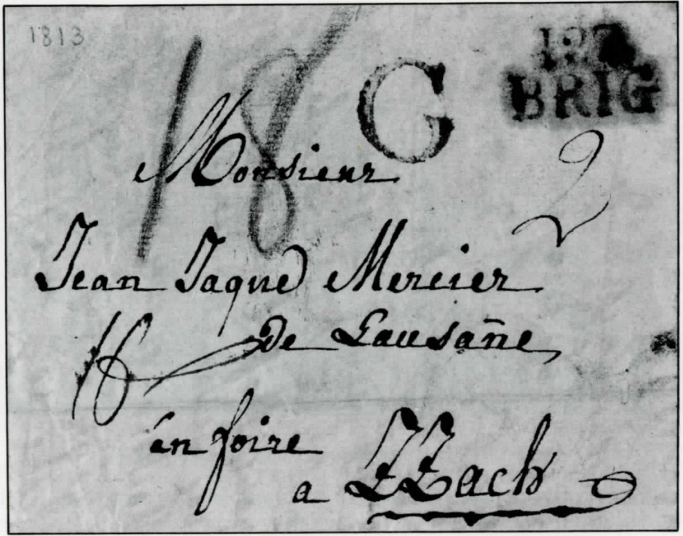 1813
18 G
127
BRIG
Monsieur
2
Jean Jaque Mercier
de Lausañe
16
en foire
a ZZach